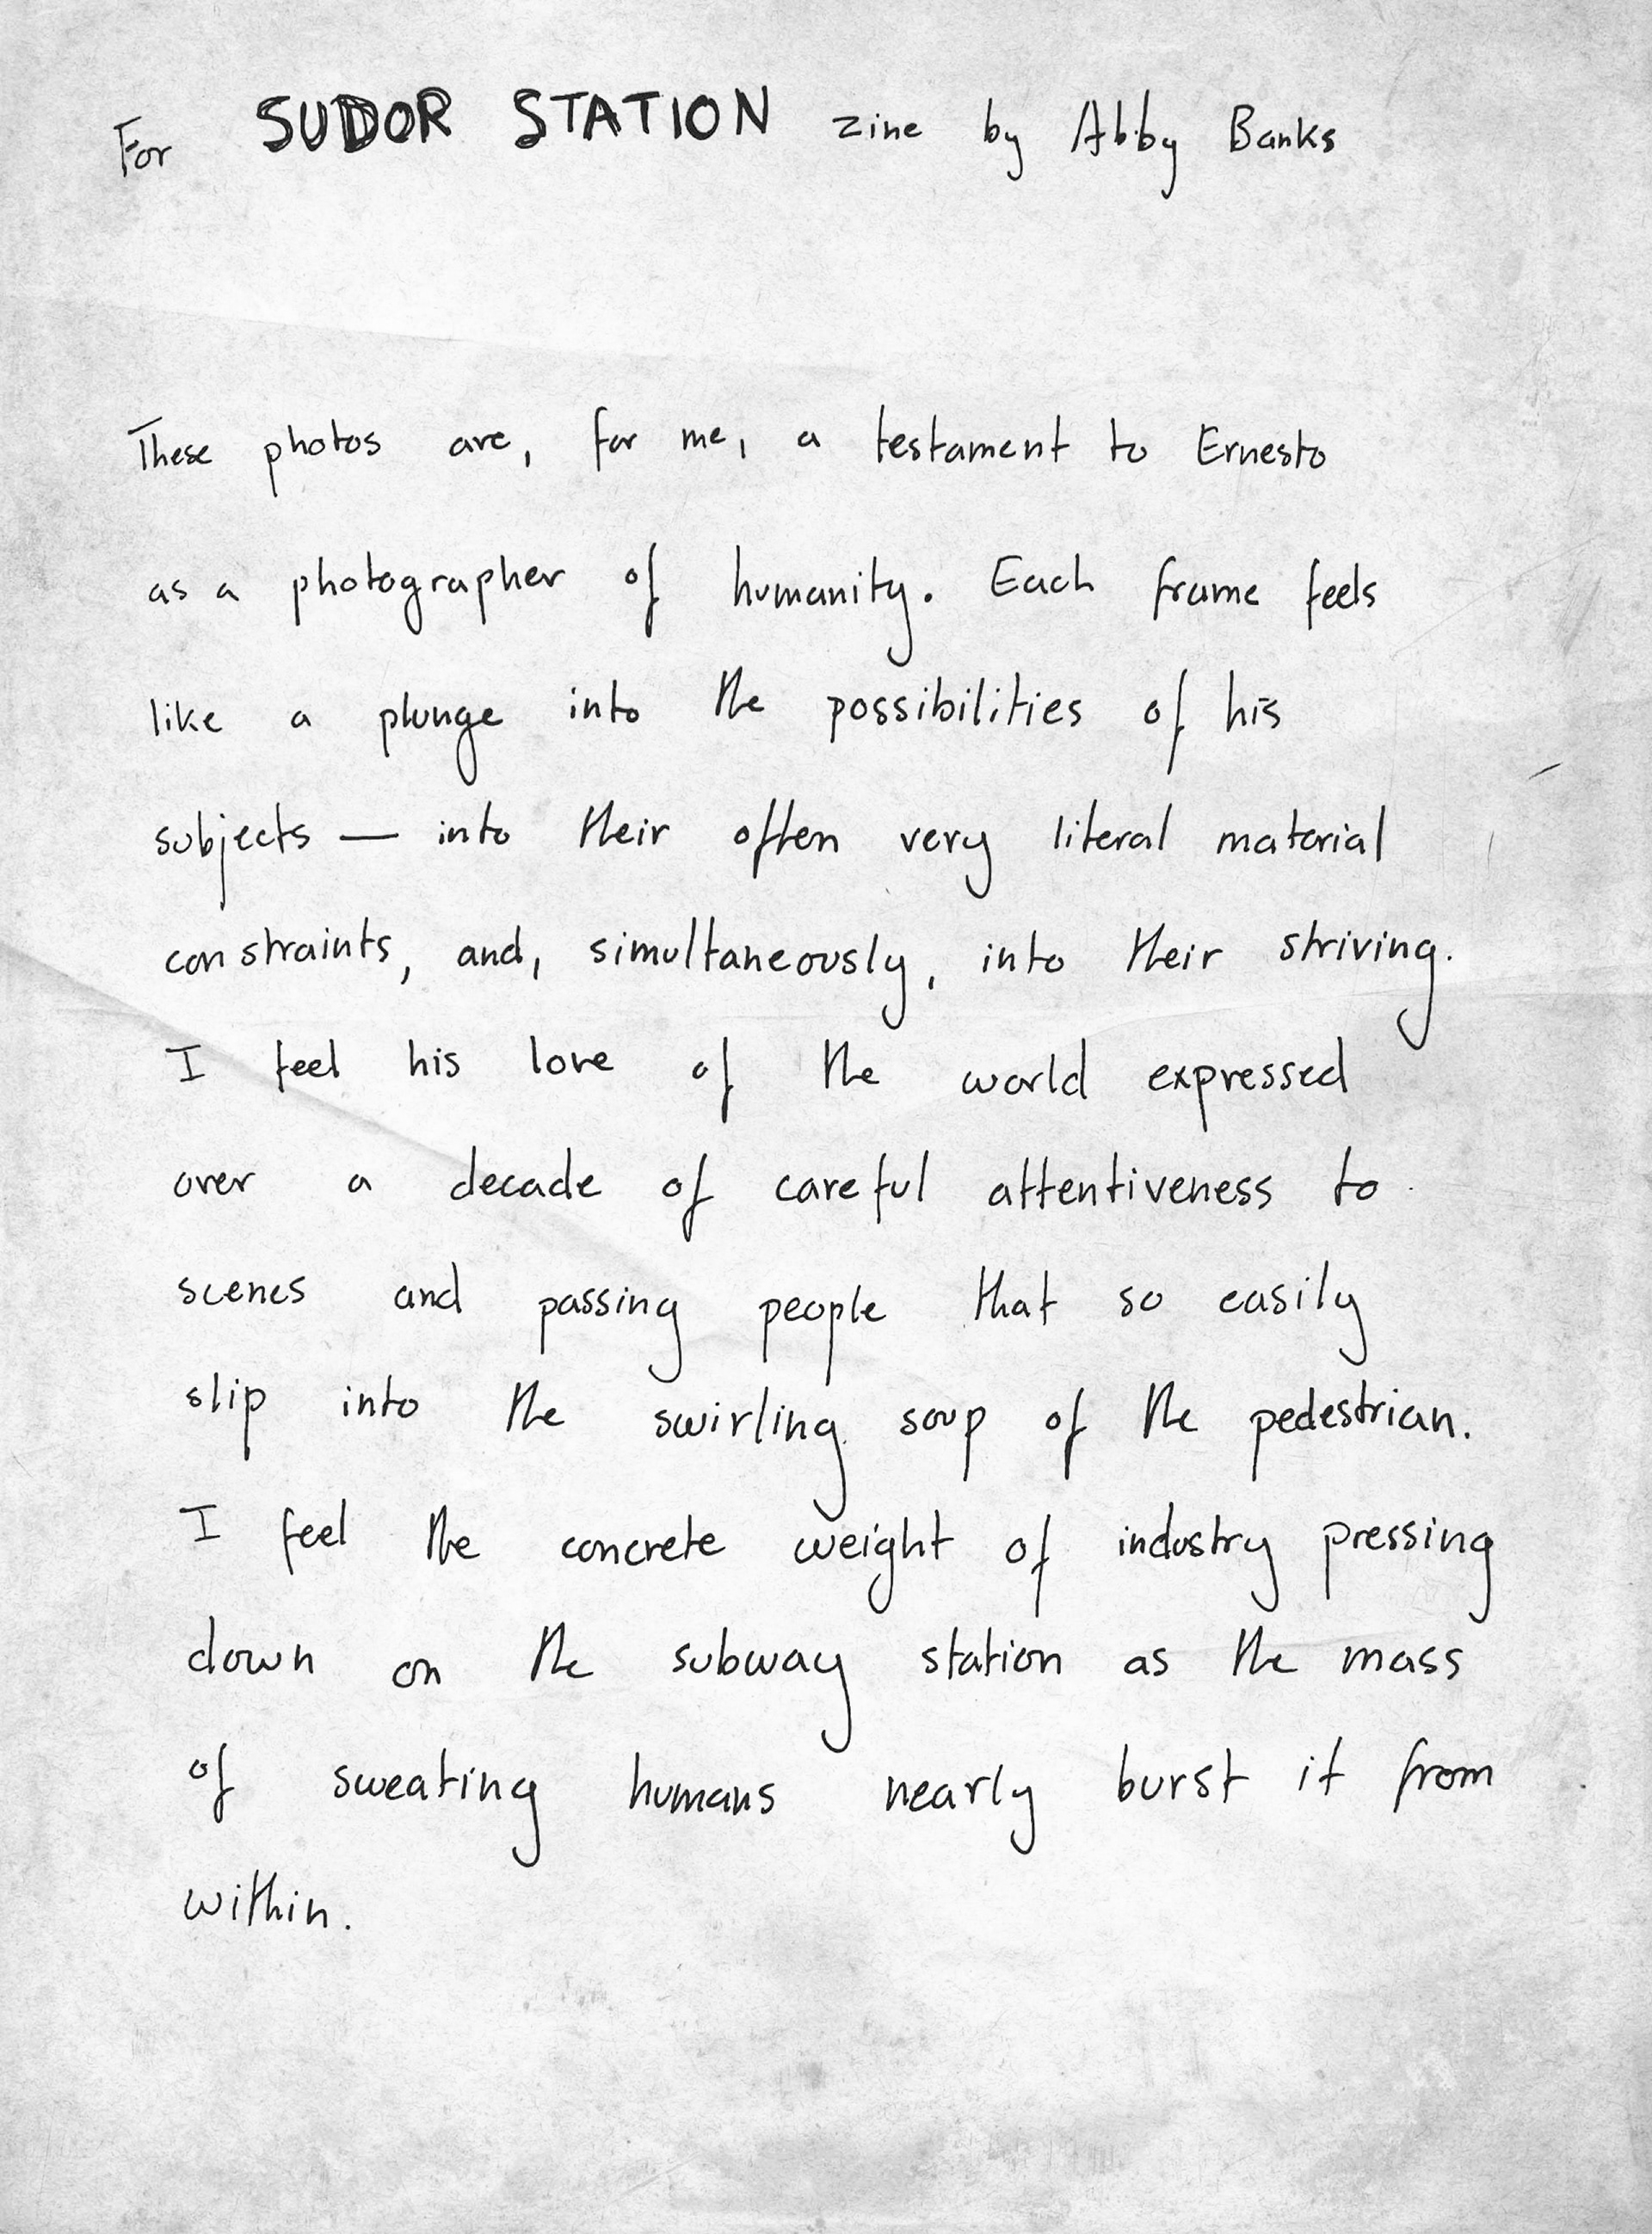 For SUDOR STATION zine by Abby Banks
These photos are, for me, a testament to Ernesto
as a photographer of humanity. Each frame feels
like a plunge into the possibilities of his
subjects — into their often very literal material
constraints, and, simultaneously, into their striving.
I feel his love of the world expressed
over a decade of careful attentiveness to
scenes and passing people that so easily
slip into the swirling soup of the pedestrian.
I feel the concrete weight of industry pressing
down on the subway station as the mass
of sweating humans nearly burst it from
within.